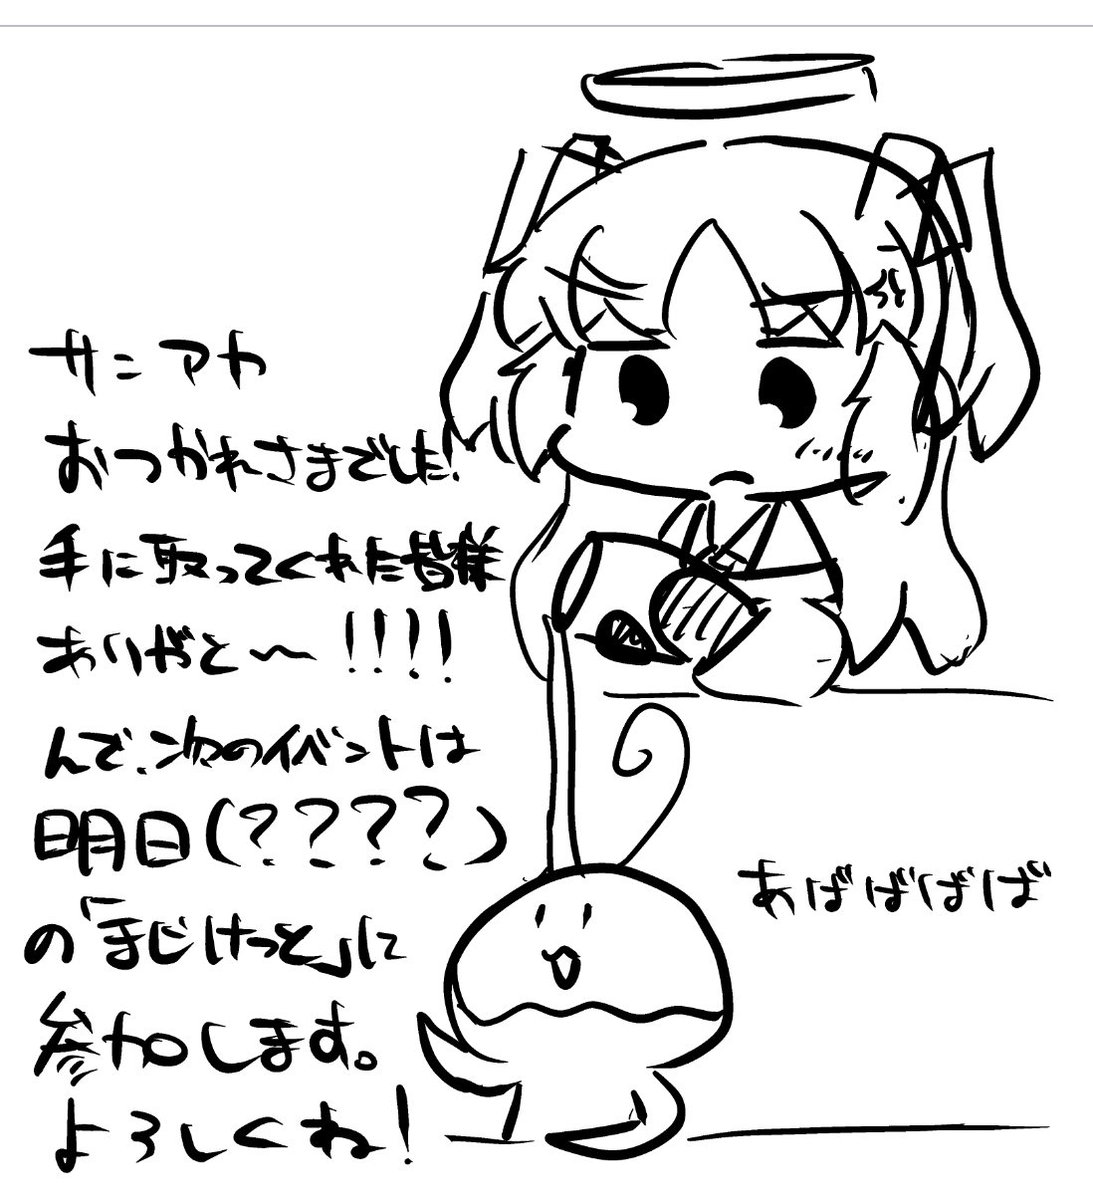 サニアカ
おつかれさまでした!
手に取ってくれた皆様
ありがと〜!!!!
んで、次のイベントは
明日(????)
の「まじけっと」に
参加します。
よろしくね!
あばばばば